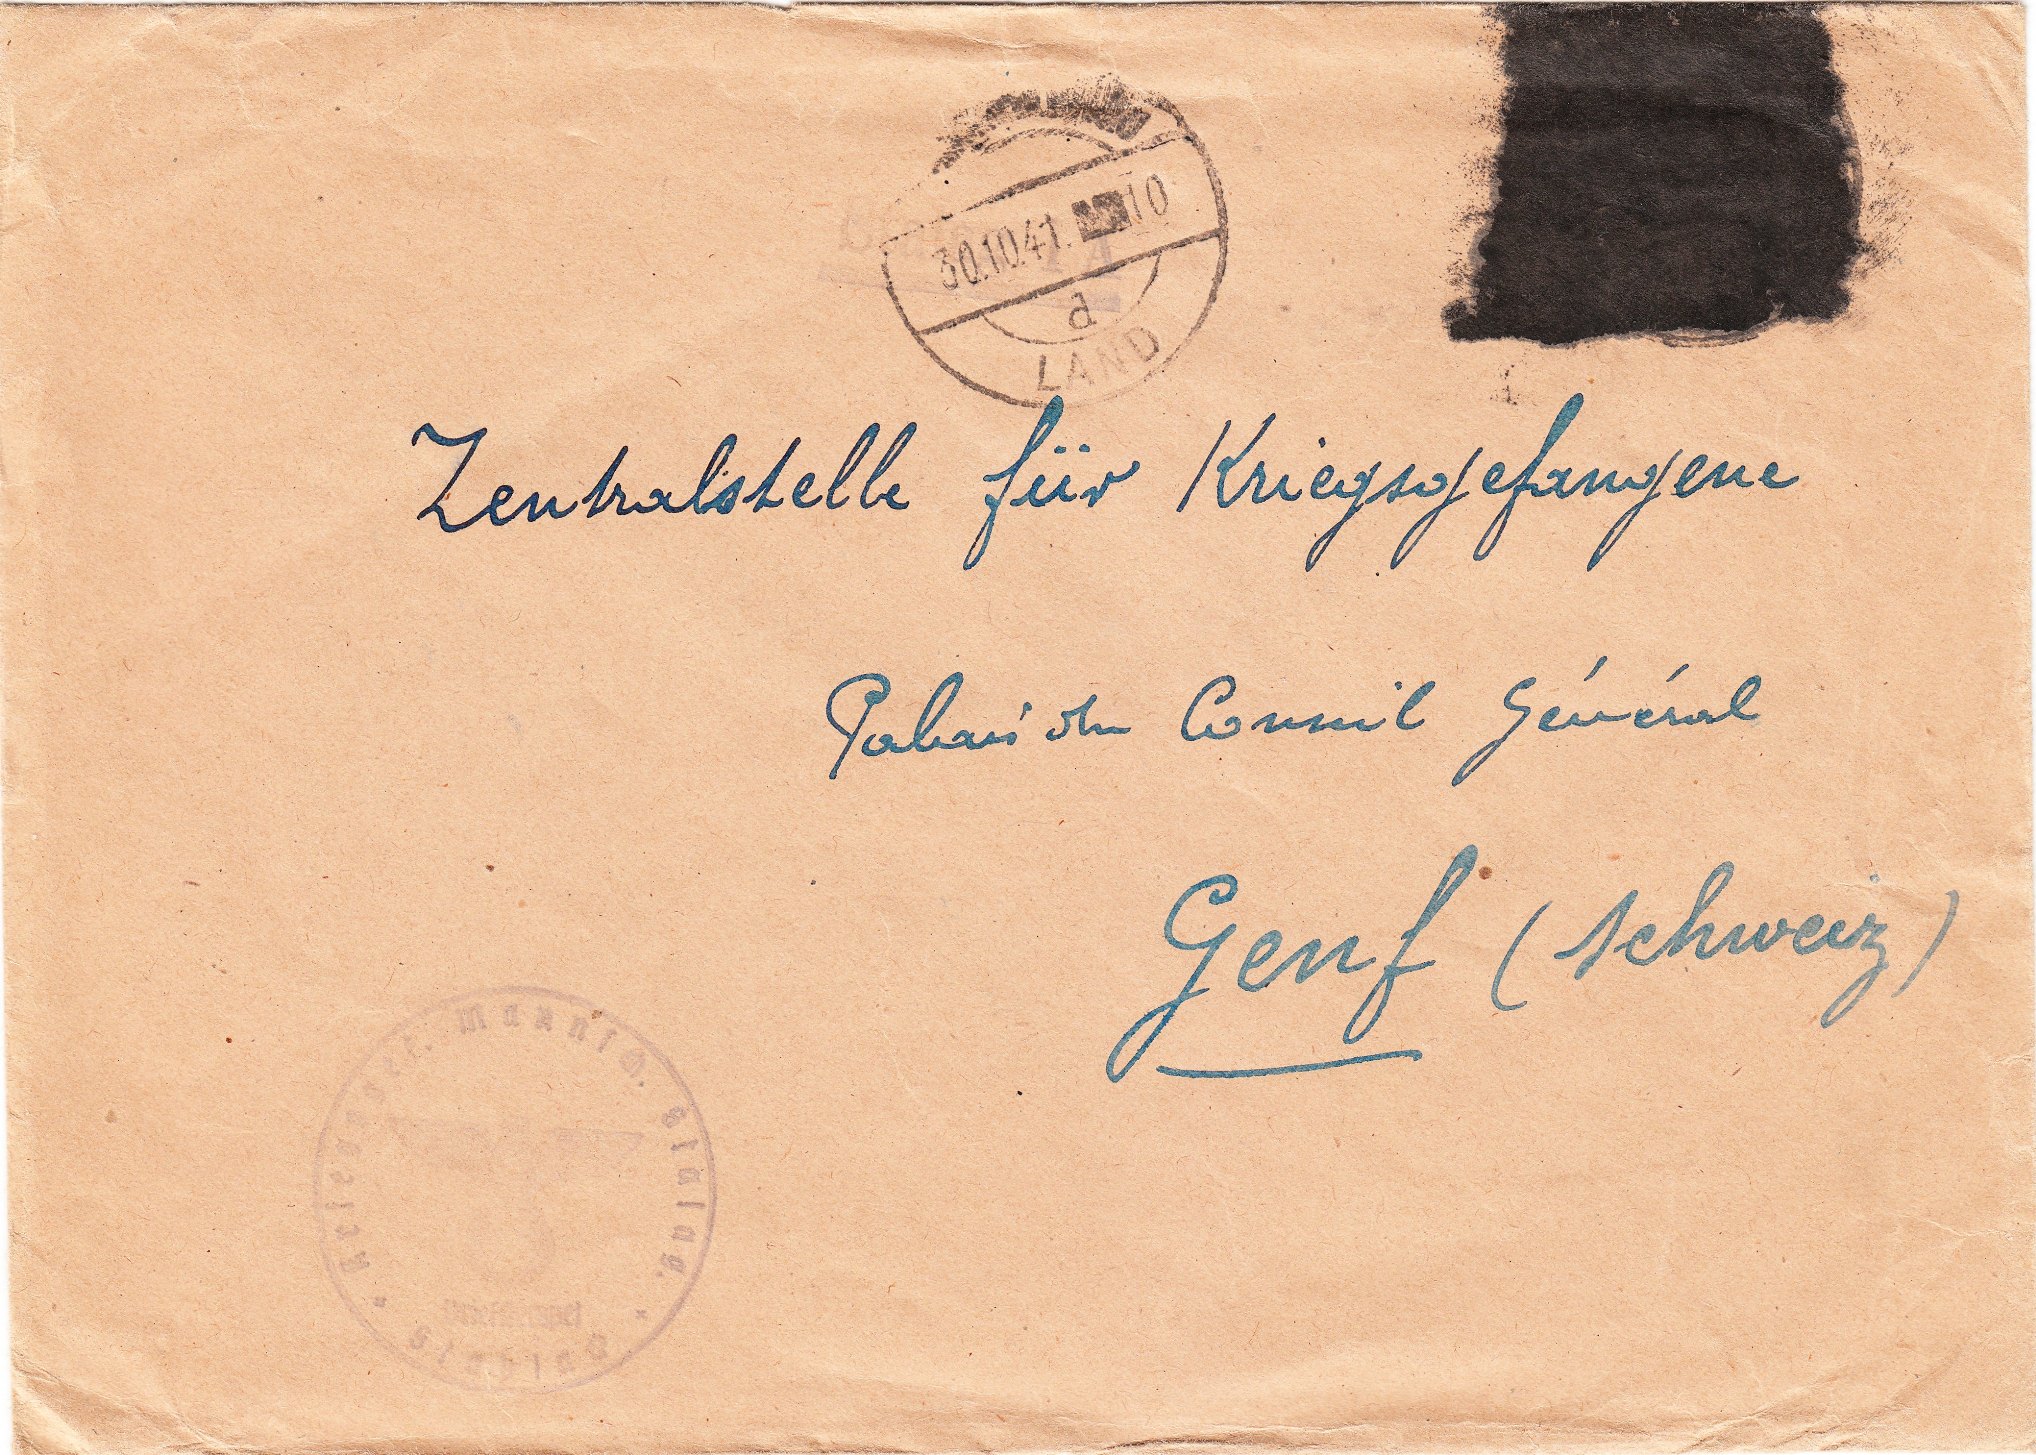 30.10.41. 10
a
LAND
Zentralstelle für Kriegsgefangene
Palais du Conseil Général
Genf (Schweiz)
Briefstempel